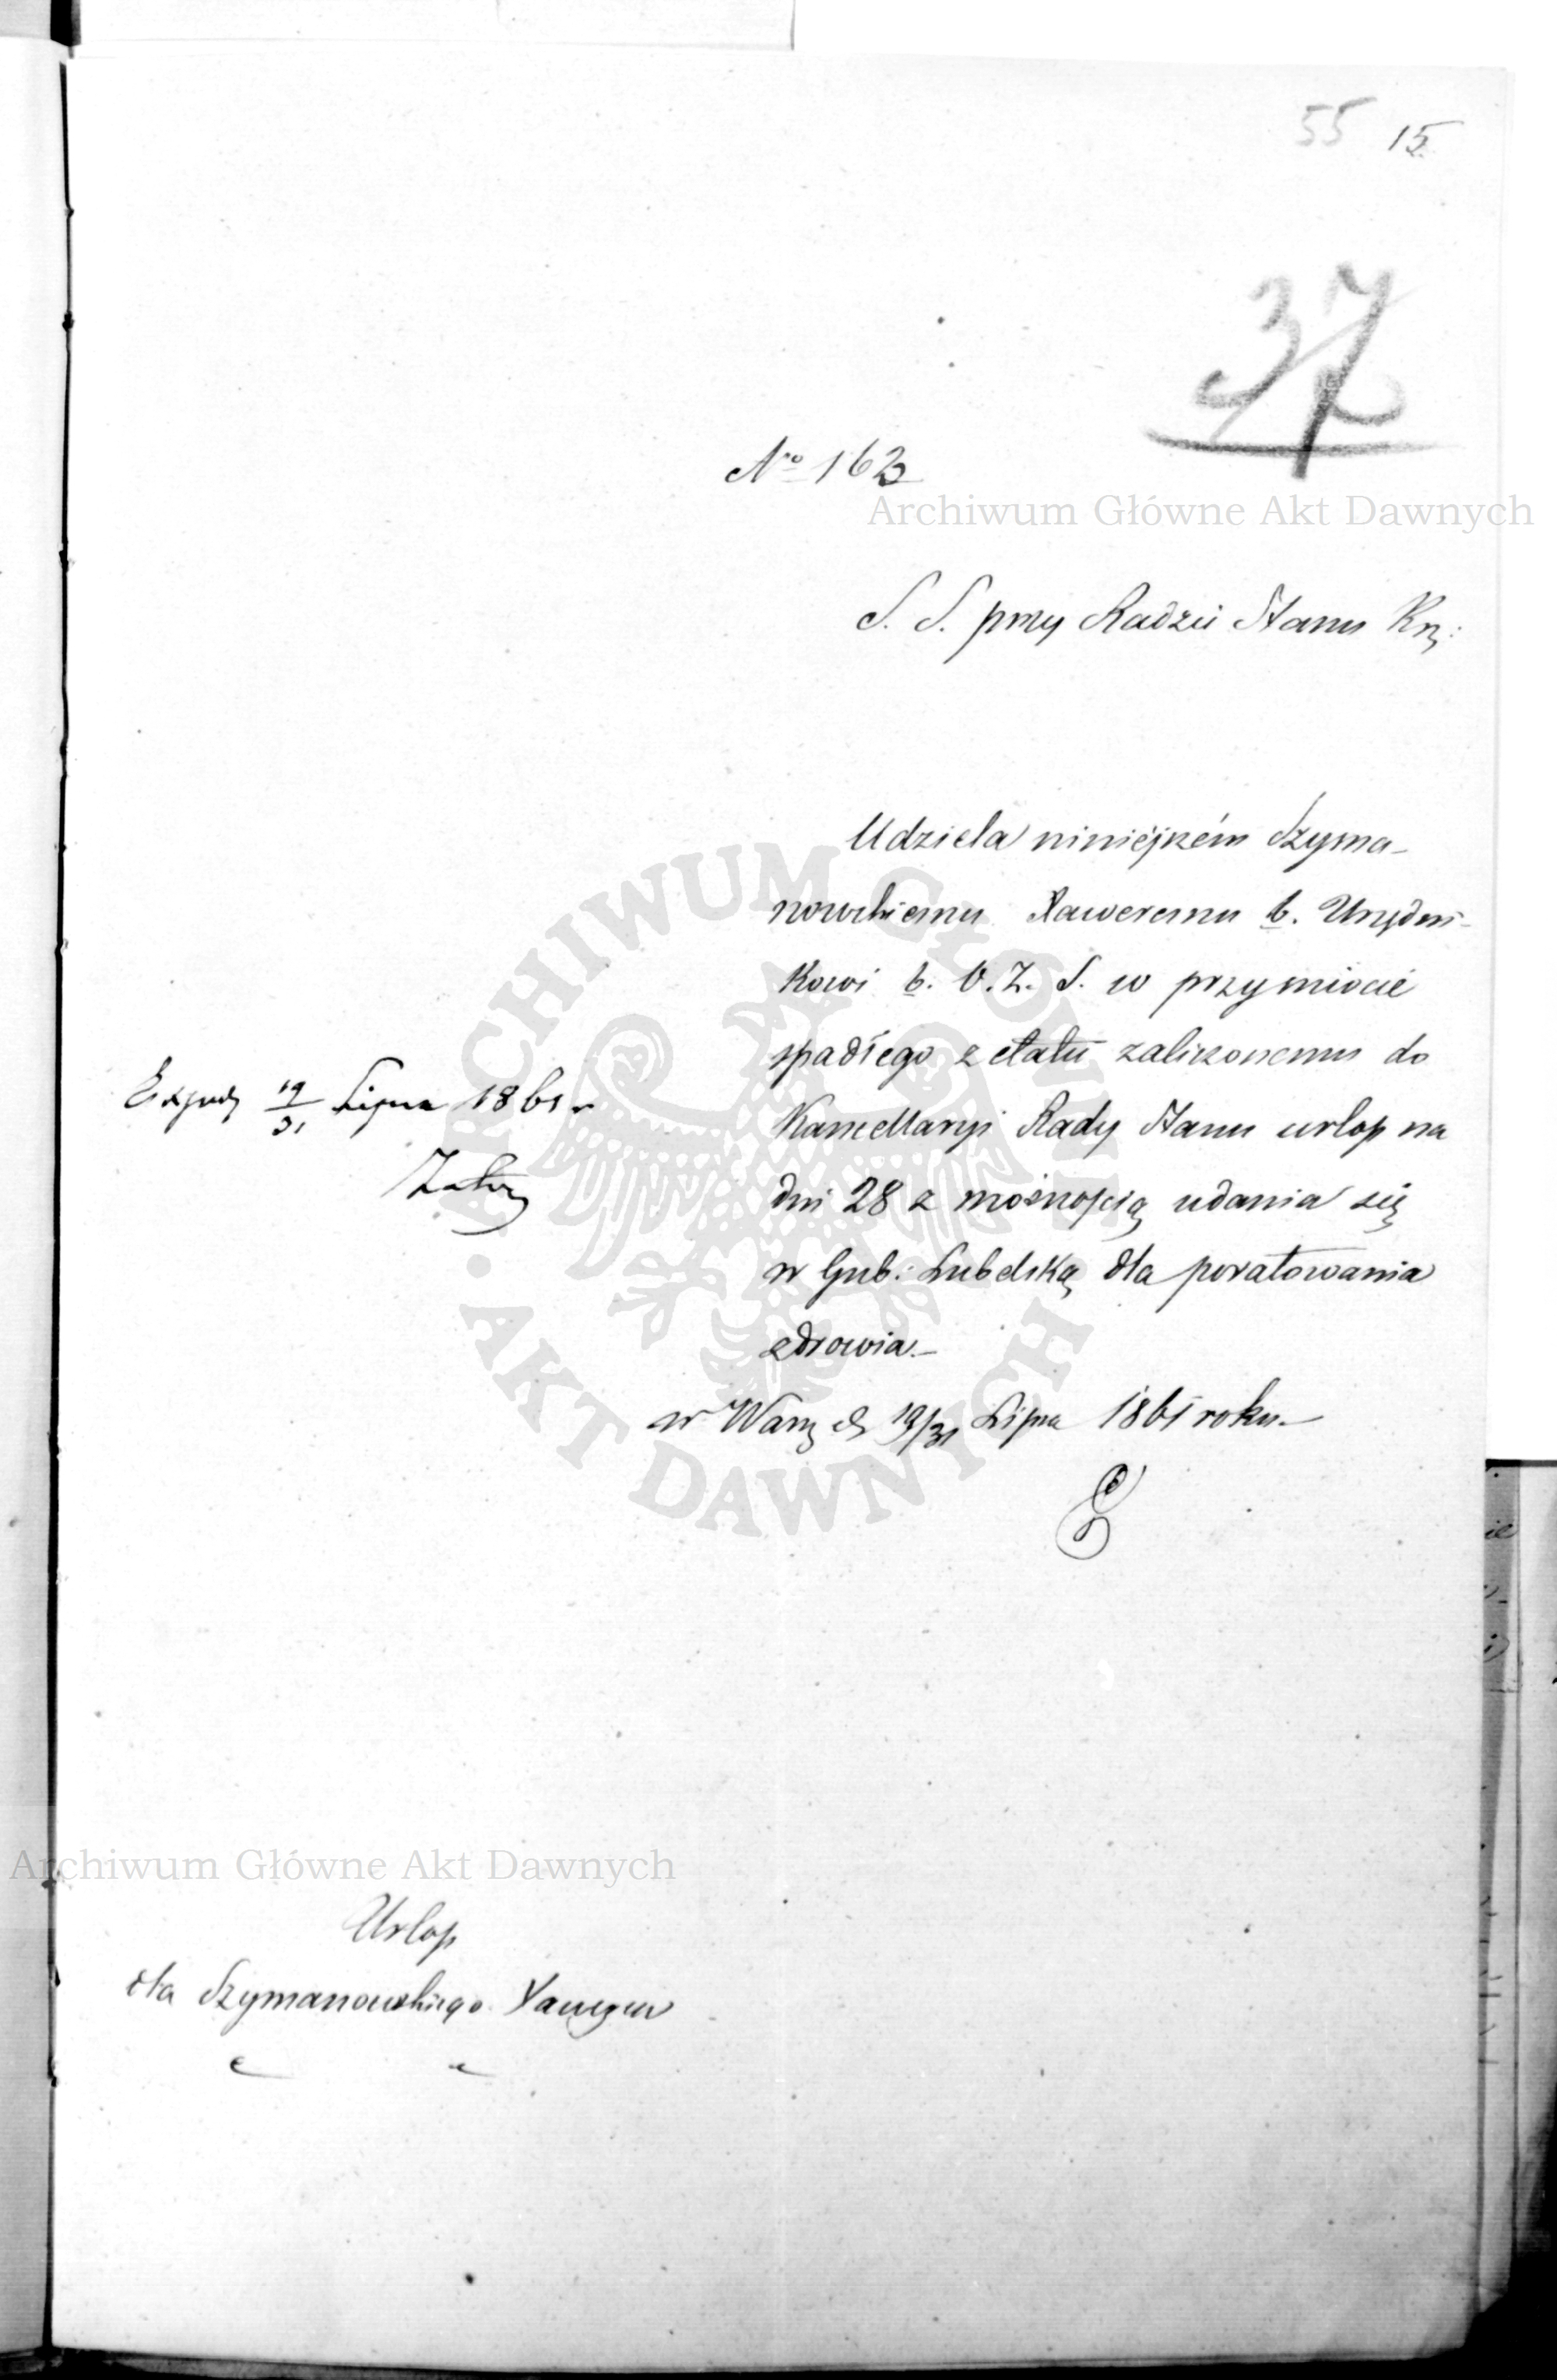 55 15
37
No 163
Archiwum Główne Akt Dawnych
S. S. przy Radzie Stanu Kr:
Udziela niniejszém Szyma-
nowskiemu Xaweremu b. Urzędni-
kowi b. O. Z. S. w przymiocie
spadłego z etatu zaliczonemu do
Kancellaryi Rady Stanu urlop na
dni 28 z możnością udania się
w Gub: Lubelską dla poratowania
zdrowia.-
w Warsz d. 19/31 Lipca 1861 roku.-
Expedy 19/31 Lipca 1861 r
ARCHIWUM GŁÓWNE
AKT DAWNYCH
Archiwum Główne Akt Dawnych
Urlop
dla Szymanowskiego Xawery